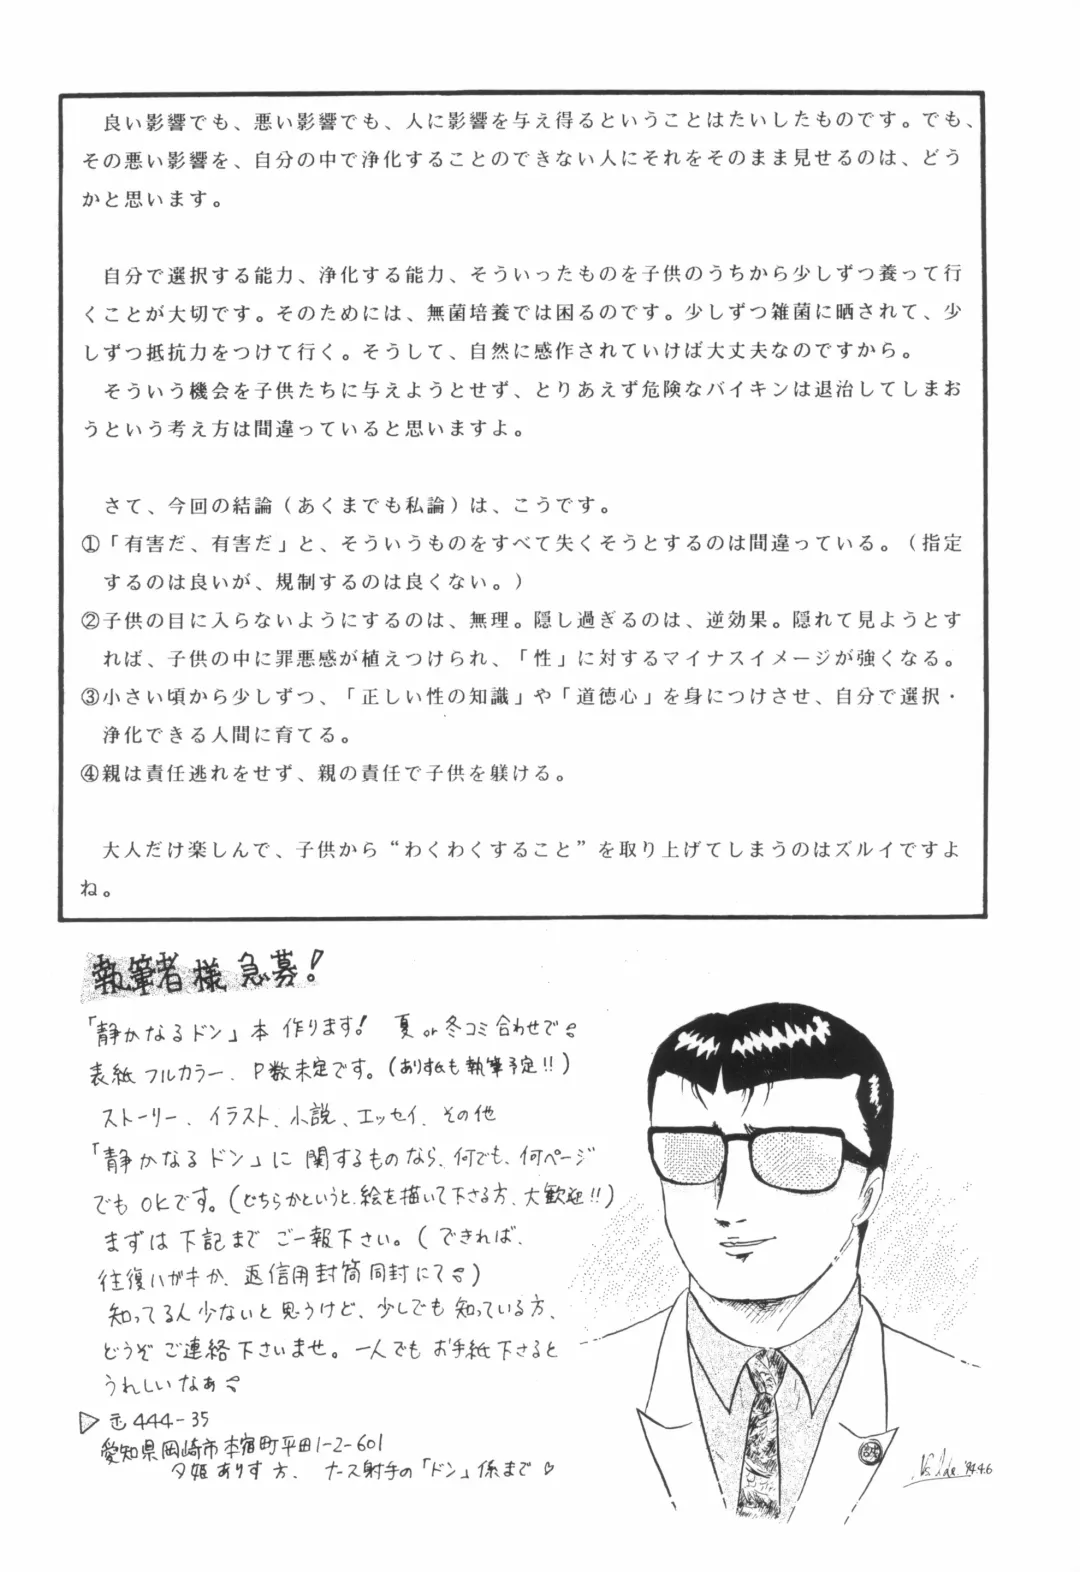 良い影響でも、悪い影響でも、人に影響を与え得るということはたいしたものです。でも、
その悪い影響を、自分の中で浄化することのできない人にそれをそのまま見せるのは、どう
かと思います。
自分で選択する能力、浄化する能力、そういったものを子供のうちから少しずつ養って行
くことが大切です。そのためには、無菌培養では困るのです。少しずつ雑菌に晒されて、少
しずつ抵抗力をつけて行く。そうして、自然に感作されていけば大丈夫なのですから。
そういう機会を子供たちに与えようとせず、とりあえず危険なバイキンは退治してしまお
うという考え方は間違っていると思いますよ。
さて、今回の結論（あくまでも私論）は、こうです。
①「有害だ、有害だ」と、そういうものをすべて失くそうとするのは間違っている。（指定
するのは良いが、規制するのは良くない。）
②子供の目に入らないようにするのは、無理。隠し過ぎるのは、逆効果。隠れて見ようとす
れば、子供の中に罪悪感が植えつけられ、「性」に対するマイナスイメージが強くなる。
③小さい頃から少しずつ、「正しい性の知識」や「道徳心」を身につけさせ、自分で選択・
浄化できる人間に育てる。
④親は責任逃れをせず、親の責任で子供を躾ける。
大人だけ楽しんで、子供から“わくわくすること”を取り上げてしまうのはズルイですよ
ね。
執筆者様急募！
「静かなるドン」本 作ります！ 夏or冬コミ合わせで♪
表紙フルカラー、P数未定です。（ありす紙も執筆予定！！）
ストーリー、イラスト、小説、エッセイ、その他
「静かなるドン」に関するものなら、何でも、何ページ
でもOKです。（どちらかというと、絵を描いて下さる方、大歓迎！！）
まずは下記まで ご一報下さい。（できれば、
往復ハガキか、返信用封筒同封にて♪）
知ってる人少ないと思うけど、少しでも知っている方、
どうぞご連絡下さいませ。一人でもお手紙下さると
うれしいなぁ♪
▷〒444-35
愛知県岡崎市本宿町平田1-2-601
夕姫ありす方、ナース射手の「ドン」係まで♡
'94.4.6